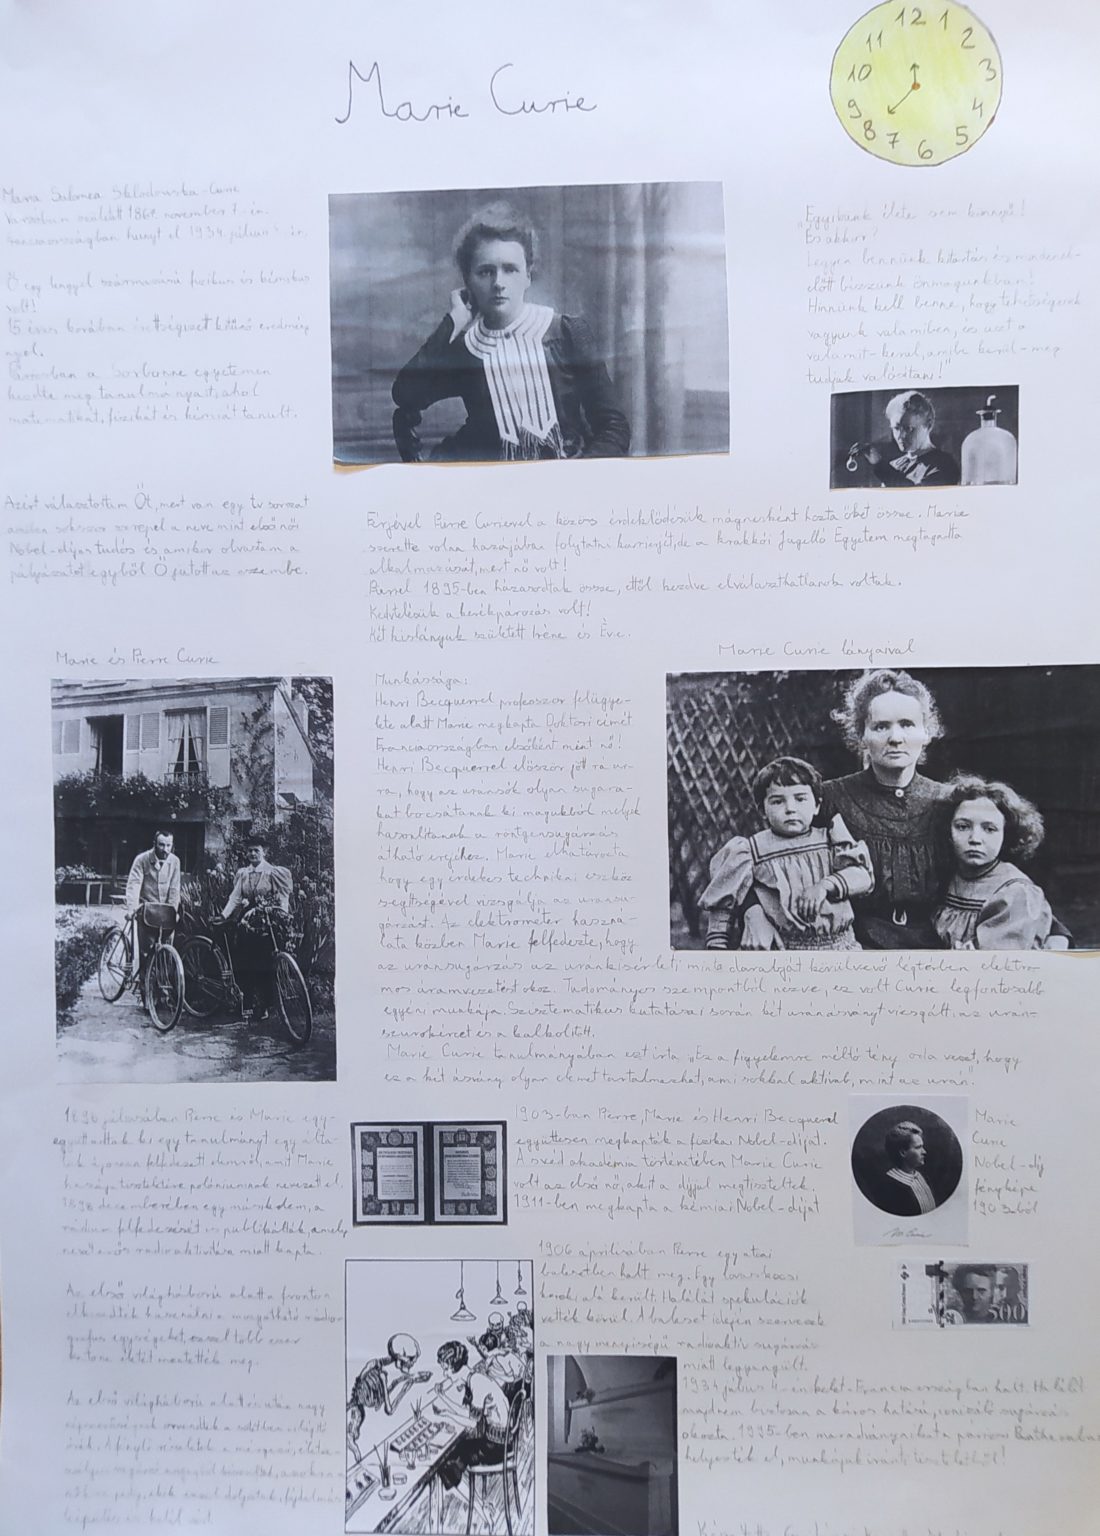 Marie Curie
12
1
2
3
4
5
6
7
8
9
10
11
Maria Salomea Sklodowska-Curie
Varsóban született 1867. november 7-én.
Franciaországban hunyt el 1934. július
Ő egy lengyel származású fizikus és kémikus
volt!
15 éves korában érettségizett kitűnő eredmény
nyel.
Párizsban a Sorbonne egyetemen
kezdte meg tanulmányait, ahol
matematikát, fizikát és kémiát tanult.
Azért választottam Őt, mert van egy tv sorozat
amiben sokszor szerepel a neve mint első női
Nobel-díjas tudós és amikor olvastam a
pályázatot egyből Ő jutott az eszembe.
„Egyikünk élete sem könnyű!
És akkor?
Legyen bennünk kitartás és mindenek-
előtt bízzunk önmagunkban!
Hinnünk kell benne, hogy tehetségesek
vagyunk valamiben, és ezt a
valamit-kerül, amibe kerül-meg
tudjuk valósítani!"
Férjével Pierre Curievel a közös érdeklődésük mágnesként hozta őket össze. Marie
szerette volna hazájában folytatni karrierjét, de a krakkói Jagelló Egyetem megtagadta
alkalmazását, mert nő volt!
Pierrel 1895-ben házasodtak össze, ettől kezdve elválaszthatlanok voltak.
Kedvtelésük a kerékpározás volt!
Két kislányuk született Irène és Ève.
Marie és Pierre Curie
Marie Curie lányaival
Munkássága:
Henri Becquerrel professzor felügye-
lete alatt Marie megkapta Doktori címét
Franciaországban elsőként mint nő!
Henri Becquerrel először jött rá ar-
ra, hogy az uránsók olyan sugara-
kat bocsátanak ki magukból melyek
hasonlítanak a röntgensugárzás
átható erejéhez. Marie elhatározta
hogy egy érdekes technikai eszköz
segítségével vizsgálja az uránsu-
gárzást. Az elektrométer haszná-
lata közben Marie felfedezte, hogy
az uránsugárzás az uránkisérleti minta darabját körülvevő légtérben elektro-
mos áramvezetést okoz. Tudományos szempontból nézve, ez volt Curie legfontosabb
egyéni munkája. Szisztematikus kutatásai során két uránásványt vizsgált, az urán-
szurokércet és a kalkolitot.
Marie Curie tanulmányában ezt írta „Ez a figyelemre méltó tény oda vezet, hogy
ez a két ásvány olyan elemet tartalmazhat, ami sokkal aktívab, mint az urán".
1896 júliusában Pierre és Marie egy-
együtt adtak ki egy tanulmányt egy álta-
luk újonnan felfedezett elemről, amit Marie
hazája tiszteletére polóniumnak nevezett el.
1898 decemberében egy második elem, a
rádium felfedezését is publikálták, amely
nevét erős radioaktivitása miatt kapta.
Az első világháború alatt a fronton
elkezdték használni a mozgatható radio-
gráfus egységeket, ezzel több ezer
katona életét mentették meg.
Az első világháború alatt és után nagy
1903-ban Pierre, Marie és Henri Becquerel
együttesen megkapták a fizikai Nobel-díjat.
A svéd akadémia történetében Marie Curie
volt az első nő, akit a díjjal megtiszteltek.
1911-ben megkapta a kémiai Nobel-díjat
Marie
Curie
Nobel-díj
fényképe
1903-ból
1906 áprilisában Pierre egy utcai
balesetben halt meg. Egy lovaskocsi
kereke alá került. Halálát spekulációk
vették körül. A baleset idején szervezete
a nagy mennyiségű radioaktív sugárzás
miatt legyengült.
1934 július 4-én kelet-Franciaországban halt. Halálát
majdnem biztosan a káros hatású, ionizáló sugárzás
okozta. 1995-ben maradványaikat a párizsi
helyezték el, munkájuk iránti tiszteletből!
500